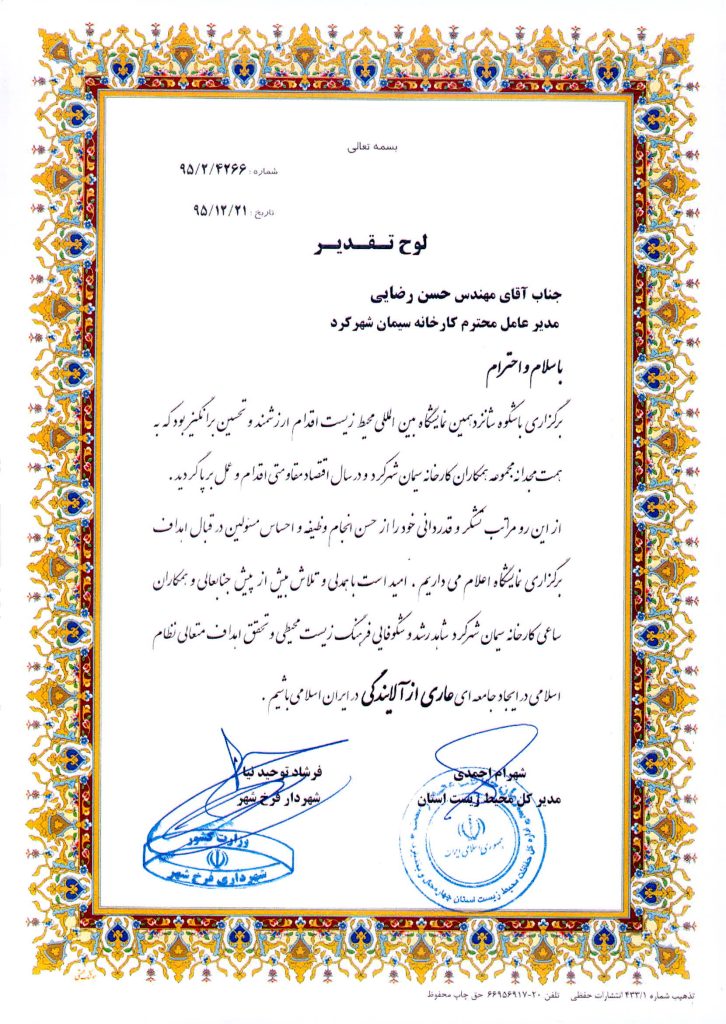 بسمه تعالی
شماره : ۹۵/۲/۴۲۶۶
تاریخ : ۹۵/۱۲/۲۱
لوح تـقـدیـر
جناب آقای مهندس حسن رضایی
مدیر عامل محترم کارخانه سیمان شهرکرد
باسلام و احترام
برگزاری باشکوه شانزدهمین نمایشگاه بین المللی محیط زیست اقدام ارزشمند و تحسین برانگیز بود که به
همت مجدانه مجموعه همکاران کارخانه سیمان شهرکرد و در سال اقتصاد مقاومتی اقدام و عمل برپا گردید .
از این رو مراتب تشکر و قدردانی خود را از حسن انجام وظیفه و احساس مسئولین در قبال اهداف
برگزاری نمایشگاه اعلام می داریم . امید است با همدلی و تلاش بیش از پیش جنابعالی و همکاران
ساعی کارخانه سیمان شهرکرد شاهد رشد و شکوفایی فرهنگ زیست محیطی و تحقق اهداف متعالی نظام
اسلامی در ایجاد جامعه ای عاری از آلایندگی در ایران اسلامی باشیم .
شهرام احمدی
مدیر کل محیط زیست استان
فرشاد توحید نیا
شهردار فرخ شهر
جمهوری اسلامی ایران
وزارت کشور
شهرداری فرخ شهر
تذهیب شماره ۴۳۳/۱ انتشارات حفظی تلفن ۲۰-۶۶۹۵۶۹۱۷ حق چاپ محفوظ